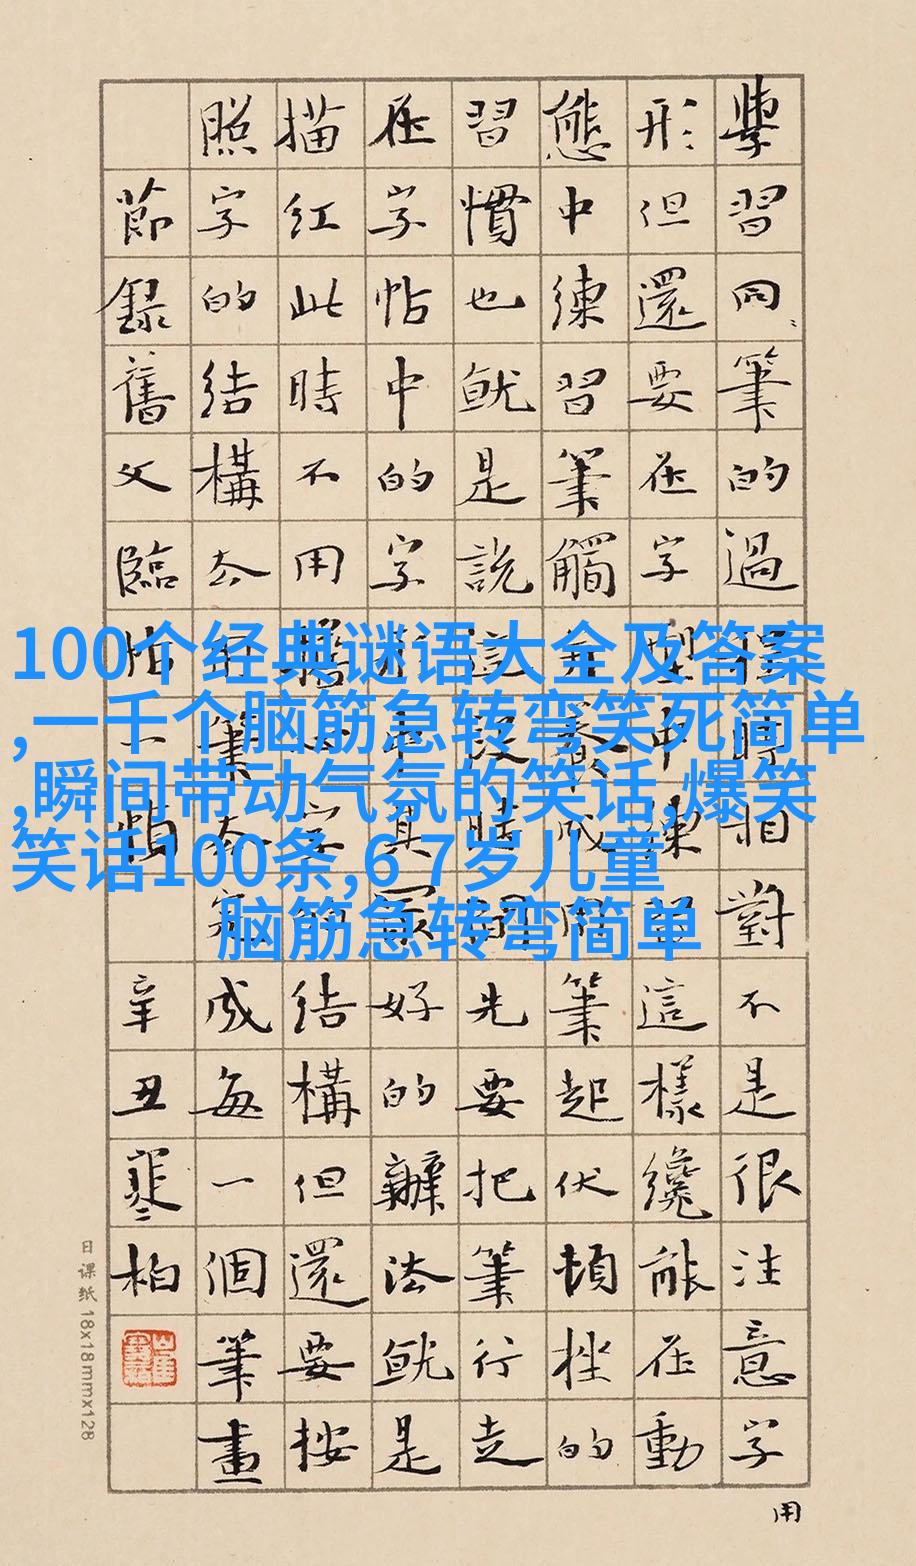 學習同筆的過程時相對不是很注意字
形但還要在字型中練習這樣纔能在動
態中練習筆觸並養成用筆起伏頓挫的
習慣也就是說這段時間先要把筆行走
在字帖中的字其最好的辦法就是
描紅此時不用結構但還要按
照字的結構去用筆去完成每一個筆畫
節錄舊文臨帖一題
辛丑寒柏
用
日课纸 18x18mmx128
100个经典谜语大全及答案
,一千个脑筋急转弯笑死简单
,瞬间带动气氛的笑话,爆笑
笑话100条,6 7岁儿童
脑筋急转弯简单